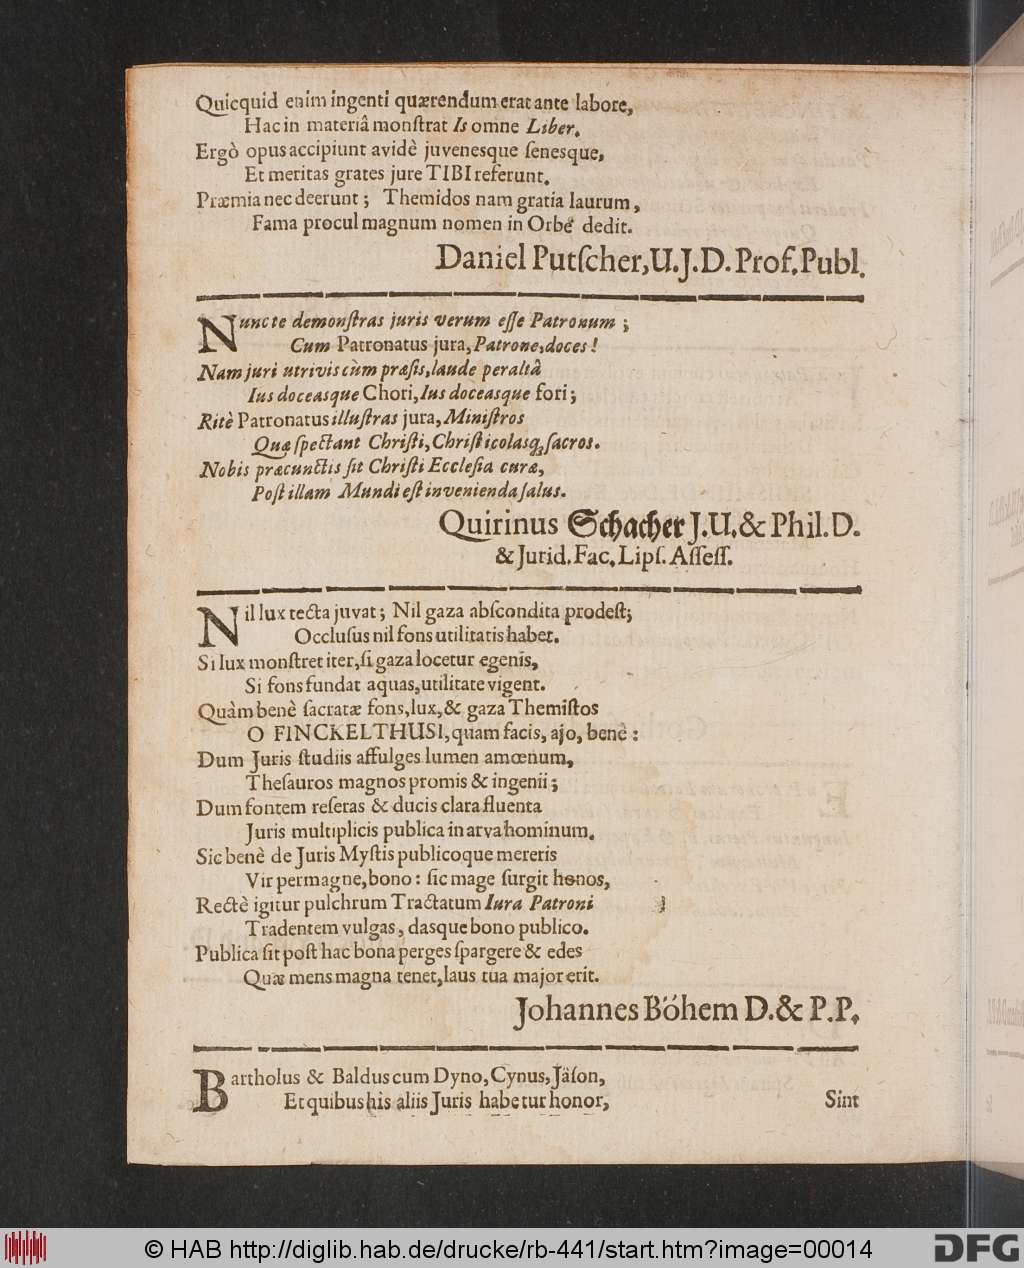 Quicquid enim ingenti quærendum erat ante labore,
Hac in materiâ monſtrat Is omne Liber.
Ergò opus accipiunt avidè juvenesque ſenesque,
Et meritas grates jure TIBI referunt.
Præmia nec deerunt; Themidos nam gratia laurum,
Fama procul magnum nomen in Orbe dedit.
Daniel Putſcher, U.J.D. Prof. Publ.
Nunc te demonſtras juris verum eſſe Patronum;
Cum Patronatus jura, Patrone, doces!
Nam juri utrivis cùm præſis, laude peraltâ
Ius doceasque Chori, Ius doceasque fori;
Ritè Patronatus illuſtras jura, Miniſtros
Quæ ſpectant Chriſti, Chriſticolasq; ſacros.
Nobis præ cunctis ſit Chriſti Eccleſia curæ,
Poſt illam Mundi eſt invenienda ſalus.
Quirinus Schacher J.U. & Phil. D.
& Jurid. Fac. Lipſ. Aſſeſſ.
Nil lux tecta juvat; Nil gaza abſcondita prodeſt;
Occluſus nil fons utilitatis habet.
Si lux monſtret iter, ſi gaza locetur egenis,
Si fons fundat aquas, utilitate vigent.
Quàm benè ſacratæ fons, lux, & gaza Themiſtos
O FINCKELTHUSI, quam facis, ajo, benè:
Dum Juris ſtudiis affulges lumen amœnum,
Theſauros magnos promis & ingenii;
Dum fontem reſeras & ducis clara fluenta
Juris multiplicis publica in arva hominum.
Sic benè de Juris Myſtis publicoque mereris
Vir permagne, bono: ſic mage ſurgit honos,
Rectè igitur pulchrum Tractatum Iura Patroni
Tradentem vulgas, dasque bono publico.
Publica ſit poſt hac bona perges ſpargere & edes
Quæ mens magna tenet, laus tua major erit.
Johannes Böhem D. & P.P.
Bartholus & Baldus cum Dyno, Cynus, Jäſon,
Et quibus his aliis Juris habetur honor,
Sint
© HAB http://diglib.hab.de/drucke/rb-441/start.htm?image=00014
DFG